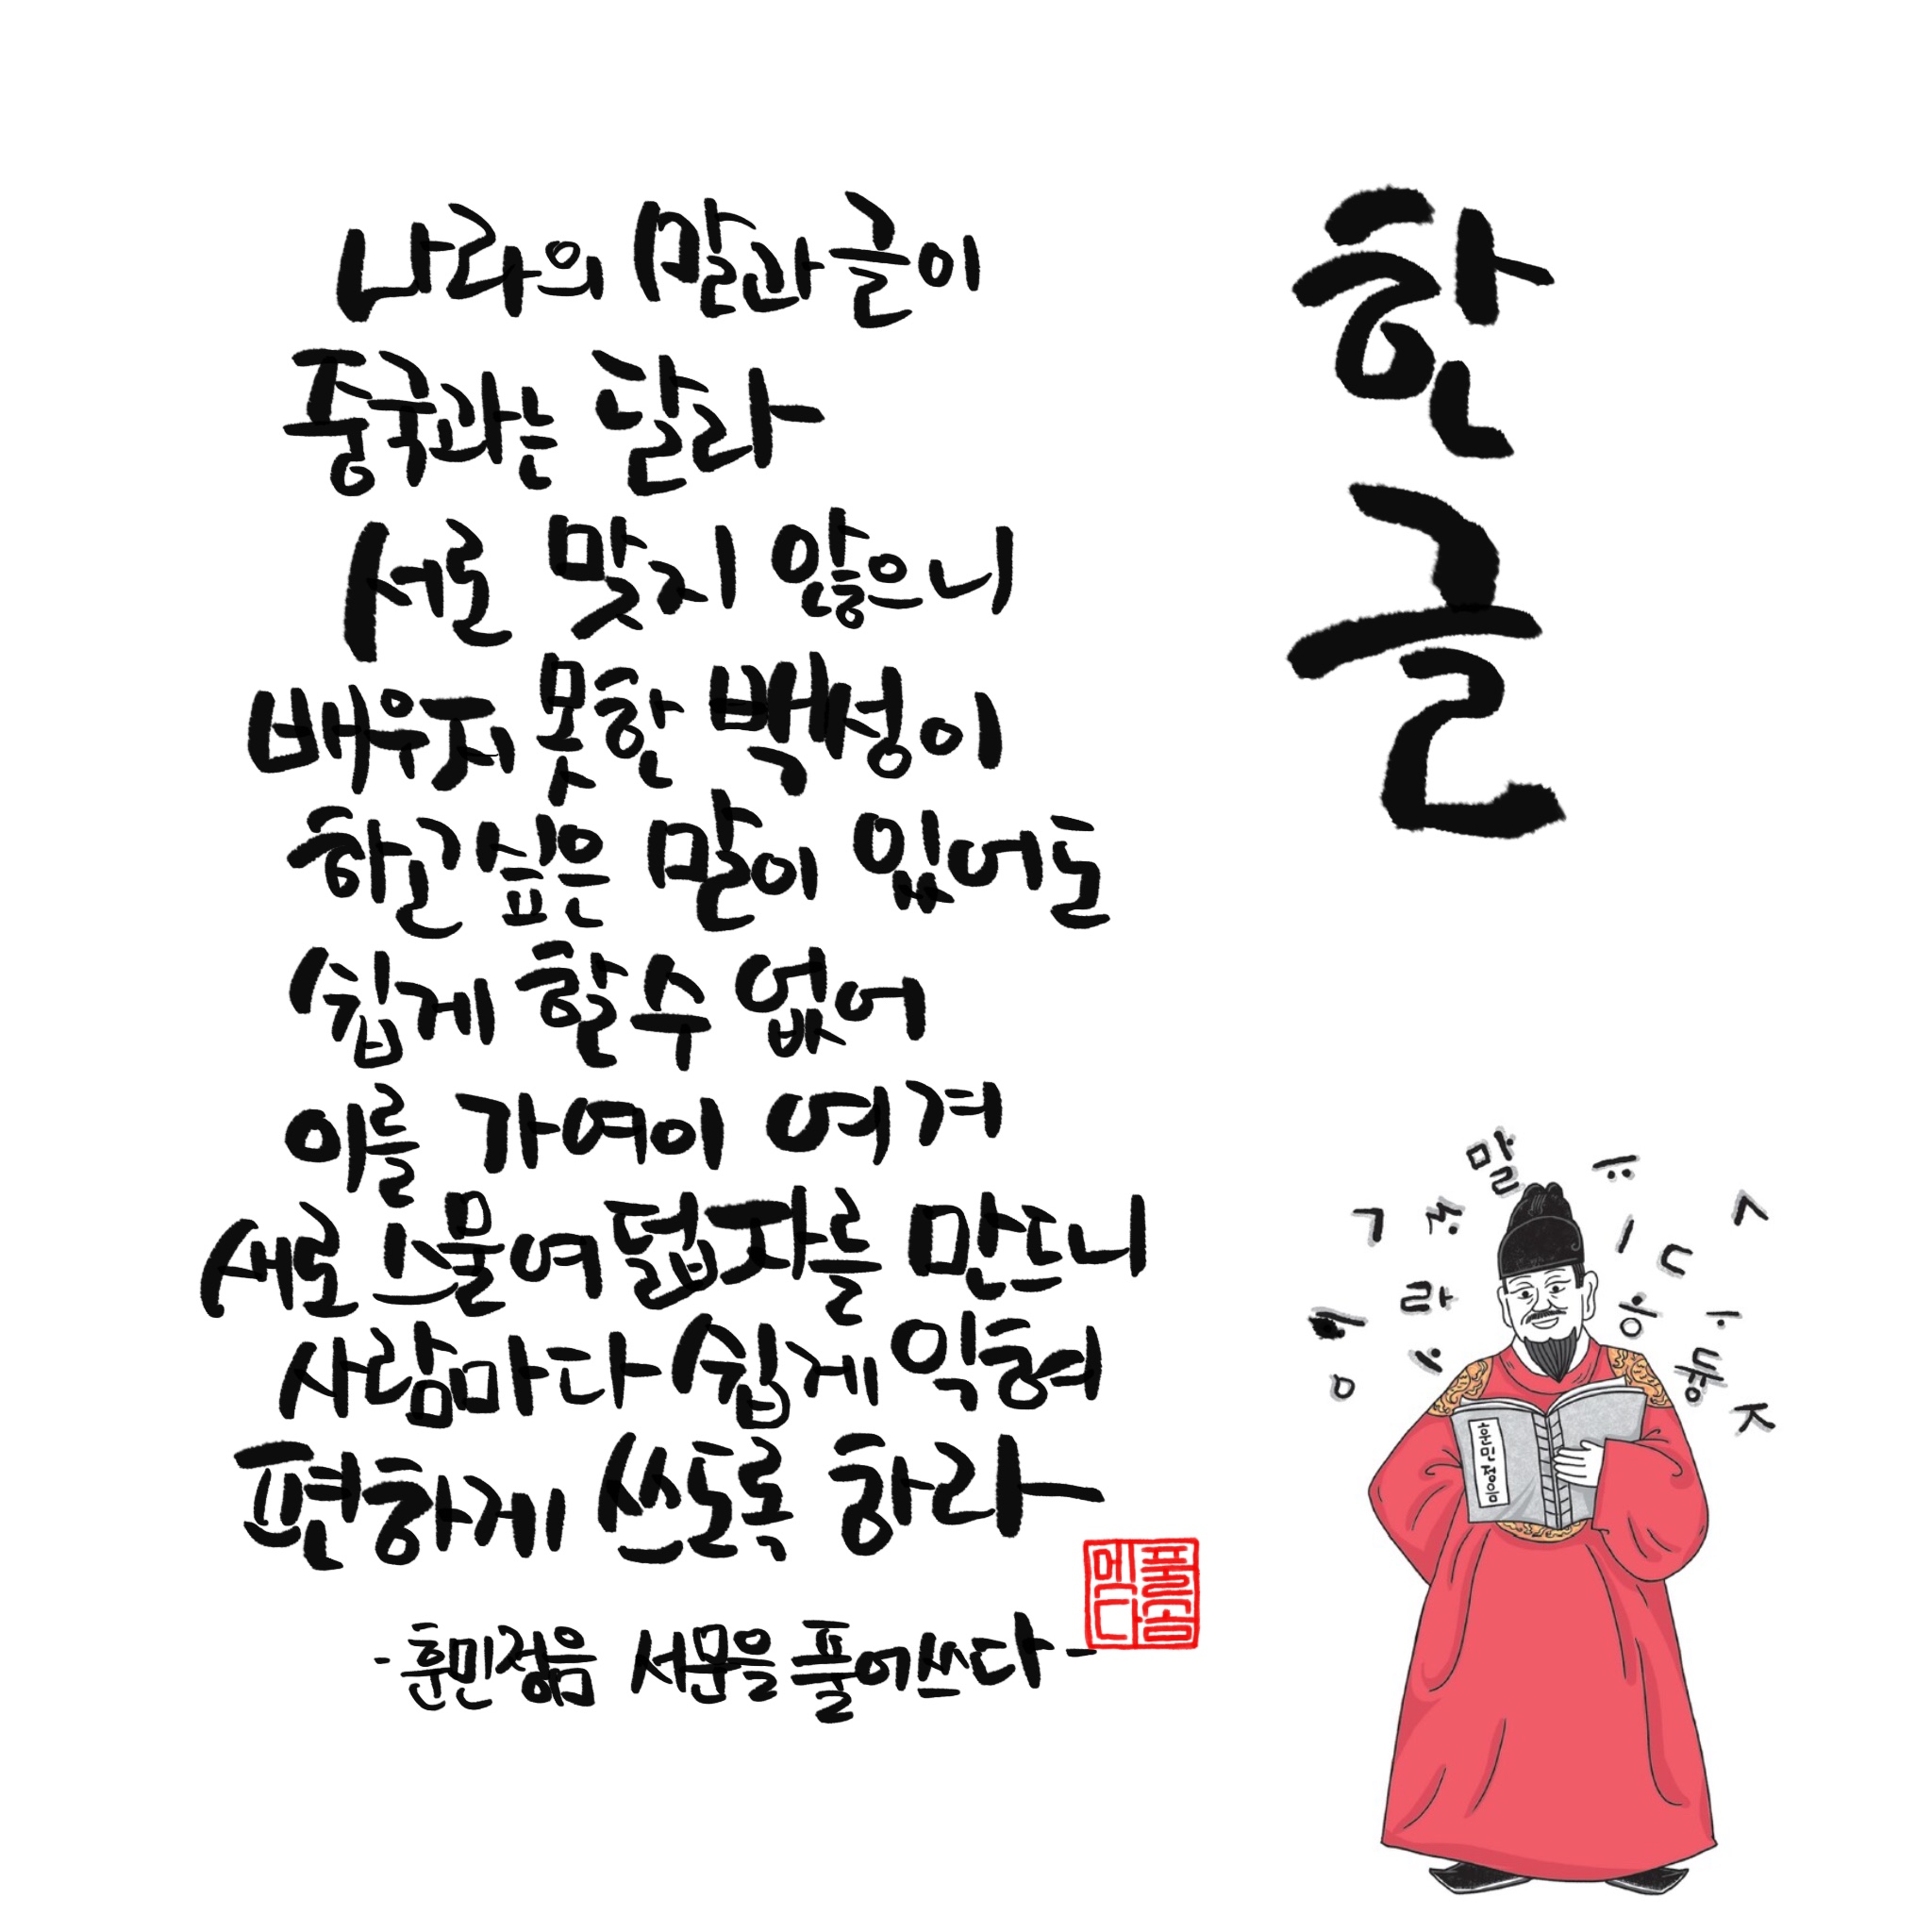 한글
나라의 말과 글이
중국과는 달라
서로 맞지 않으니
배우지 못한 백성이
하고 싶은 말이 있어도
쉽게 할 수 없어
이를 가여이 여겨
새로 스물여덟 자를 만드니
사람마다 쉽게 익혀
편하게 쓰도록 하라
- 훈민정음 서문을 풀어쓰다 -
말
ㅠ
ㄱ
ㅅ
ㅣ
ㄷ
라
ㅎ
ㅡ
ㅇ
ㅈ
훈민정음